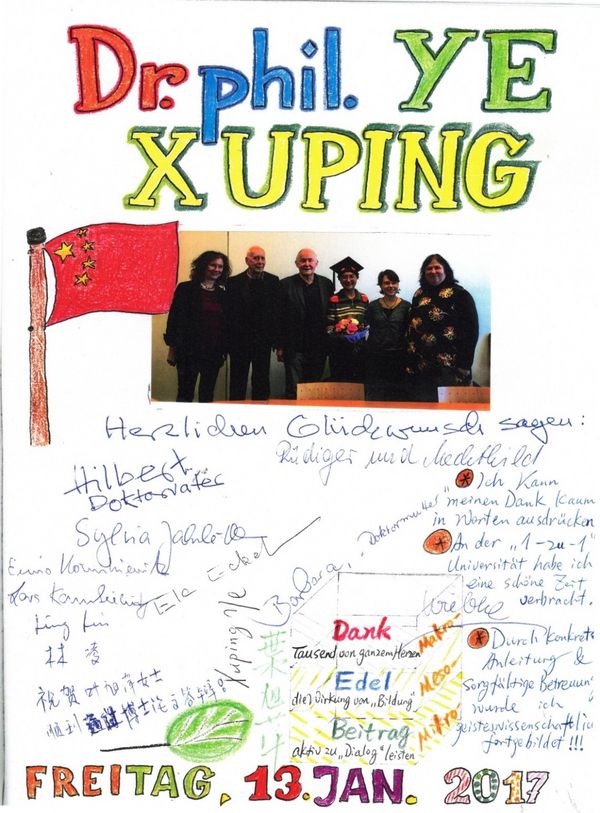 Dr. phil. YE
XUPING
Herzlichen Glückwunsch sagen:
Rüdiger und Mechthild
Hilbert
Doktorvater
Sylvia
Barbara, "Doktormutter"
Wiebke
Ling Lin
林凌
祝贺叶旭萍女士
顺利通过博士论文答辩!
Xuping Ye
叶旭萍
Ich kann
meinen Dank kaum
in Worten ausdrücken
An der „1-zu-1"
Universität habe ich
eine schöne Zeit
verbracht.
Durch konkrete
Anleitung &
sorgfältige Betreuung
wurde ich
geisteswissenschaftlich
fortgebildet!!!
Dank
Tausend von ganzem Herzen
Edel
die Wirkung von „Bildung"
Beitrag
aktiv zu „Dialog" leisten
Makro-
Meso-
Mikro-
FREITAG, 13. JAN. 2017